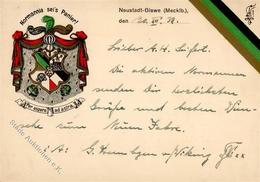 Normannia sei's Panier!
Neustadt-Glewe (Mecklb.),
den
Lieber A. H. Seifert.
Die aktiven Normannen
senden Dir herzlichste
Grüße und besten Wün-
sche zum Neuen Jahre.
Per aspera ad astra.
i. A.